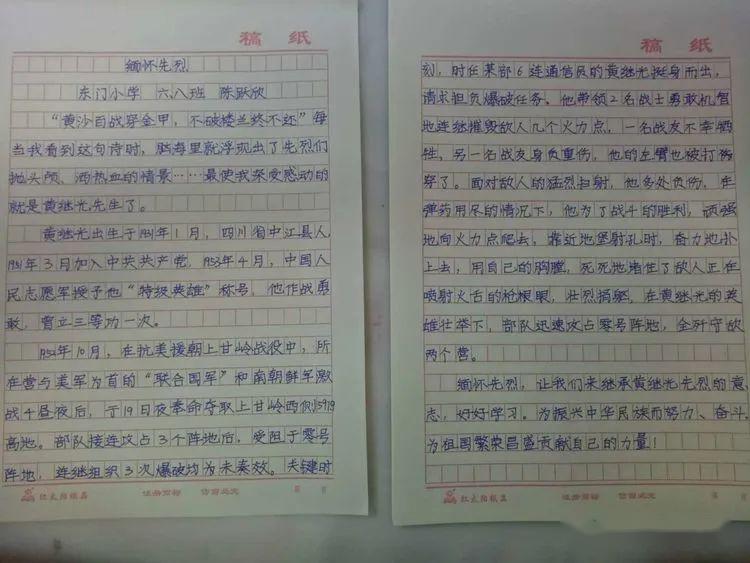 稿 纸
缅怀先烈
东门小学 六、八班 陈跃欣
“黄沙百战穿金甲，不破楼兰终不还”每
当我看到这句诗时，脑海里就浮现出了先烈们
抛头颅、洒热血的情景……最使我深受感动的
就是黄继光先生了。
黄继光出生于1931年1月，四川省中江县人，
1951年3月加入中共共产党，1953年4月，中国人
民志愿军授予他“特级英雄”称号，他作战勇
敢，曾立三等功一次。
1952年10月，在抗美援朝上甘岭战役中，所
在营与美军为首的“联合国军”和南朝鲜军激
战4昼夜后，于19日夜奉命夺取上甘岭西侧597.9
高地。部队接连攻占3个阵地后，受阻于零号
阵地，连继组织3次爆破均为未奏效。关键时
红太阳纸品
稿 纸
刻，时任某部6连通信员的黄继光挺身而出，
请求担负爆破任务。他带领2名战士勇敢机智
地连继摧毁敌人几个火力点，一名战友不幸牺
牲，另一名战友身负重伤，他的左臂也被打
穿了。面对敌人的猛烈扫射，他多处负伤，在
弹药用尽的情况下，他为了战斗的胜利，顽强
地向火力点爬去，靠近地堡射孔时，奋力地扑
上去，用自己的胸膛，死死地堵住了敌人正在
喷射火舌的枪根眼，壮烈捐躯，在黄继光的英
雄壮举下，部队迅速攻占零号阵地，全歼守敌
两个营。
缅怀先烈，让我们来继承黄继光先烈的意
志，好好学习。为振兴中华民族而努力、奋斗。
为祖国繁荣昌盛贡献自己的力量！
红太阳纸品